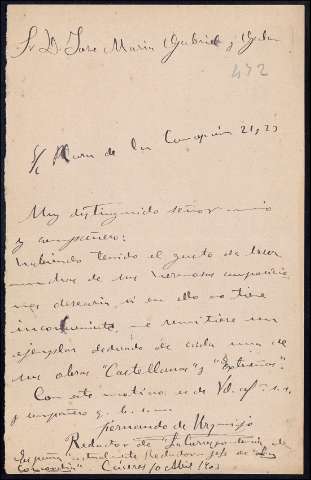 Sr. D. José María Gabriel y Galán
432
S/c Plaza de la Concepción 21, 2º
Muy distinguido señor mío
y compañero:
Habiendo tenido el gusto de leer
de sus hermosas composicio
nes desearía, si en ello no tiene
inconveniente, me remitiese un
ejemplar dedicado de cada una de
sus obras "Castellanas" y "Extremeñas".
Con este motivo es de Vd. afº. s.s.
y compañero q. b. s. m.
Fernando de Urquijo
Redactor de la Correspondencia de
España, actualmente Redactor jefe de "La
Cáceres 10 Abril 903